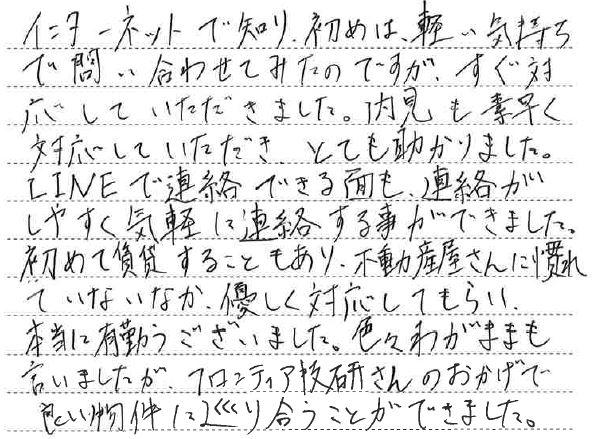 インターネットで知り、初めは、軽い気持ち
で問い合わせてみたのですが、すぐ対
応していただきました。内見も素早く
対応していただき、とても助かりました。
LINEで連絡できる面も、連絡が
しやすく気軽に連絡する事ができました。
初めて賃貸することもあり、不動産屋さんに慣れ
ていないなか、優しく対応してもらい、
本当に有勤うございました。色々わがままも
言いましたが、フロンティア技研さんのおかげで
良い物件に巡り合うことができました。